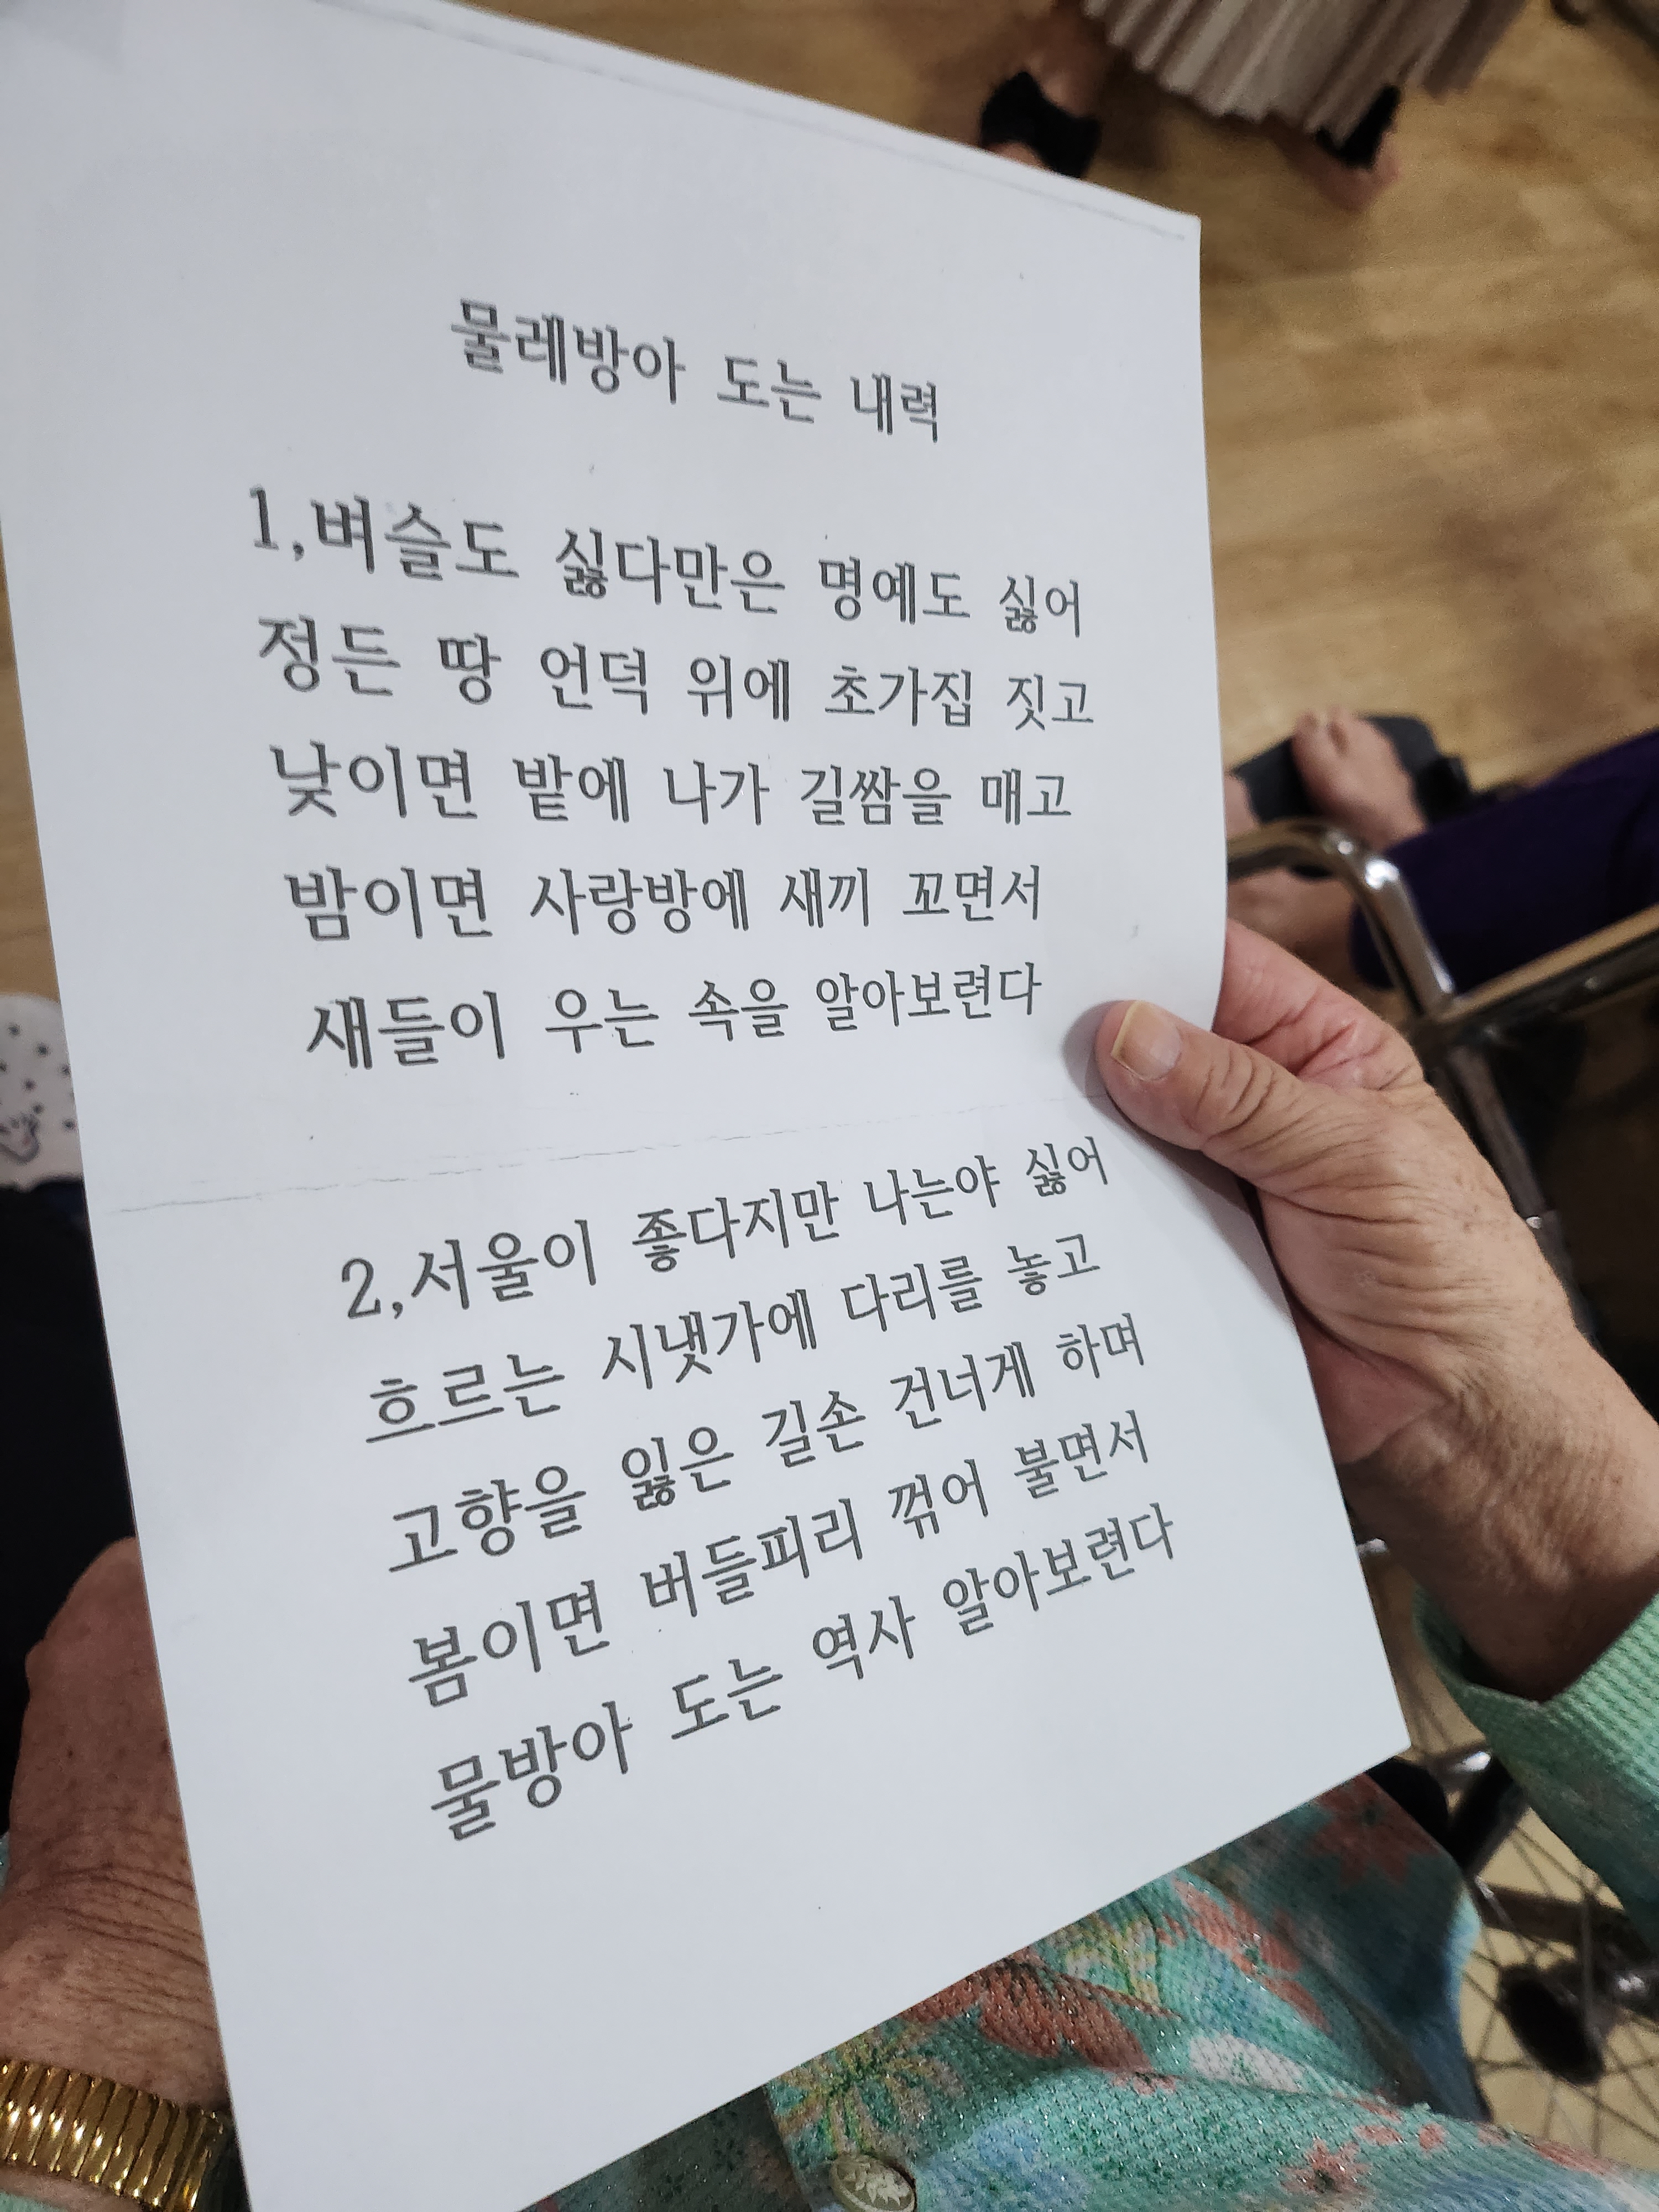 물레방아 도는 내력
1,벼슬도 싫다만은 명예도 싫어
정든 땅 언덕 위에 초가집 짓고
낮이면 밭에 나가 길쌈을 매고
밤이면 사랑방에 새끼 꼬면서
새들이 우는 속을 알아보련다
2,서울이 좋다지만 나는야 싫어
흐르는 시냇가에 다리를 놓고
고향을 잃은 길손 건너게 하며
봄이면 버들피리 꺾어 불면서
물방아 도는 역사 알아보련다